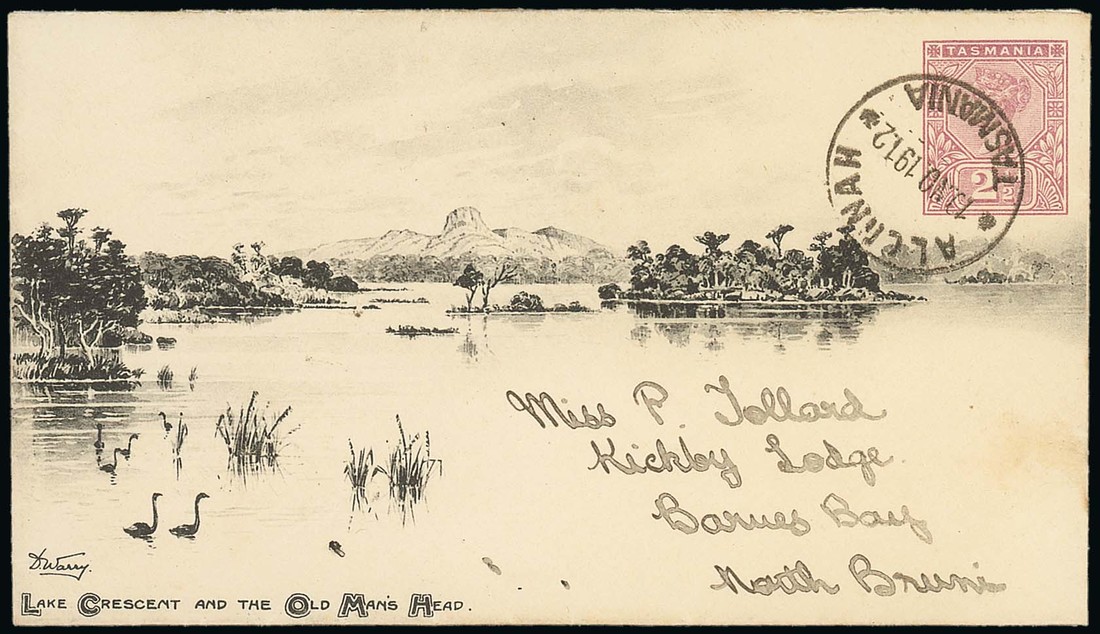 TASMANIA
2D
ALONNAH
TASMANIA
1912
Miss P. Tollard
Kickby Lodge
Barnes Bay
North Bruni
D. Warry.
LAKE CRESCENT AND THE OLD MAN'S HEAD.